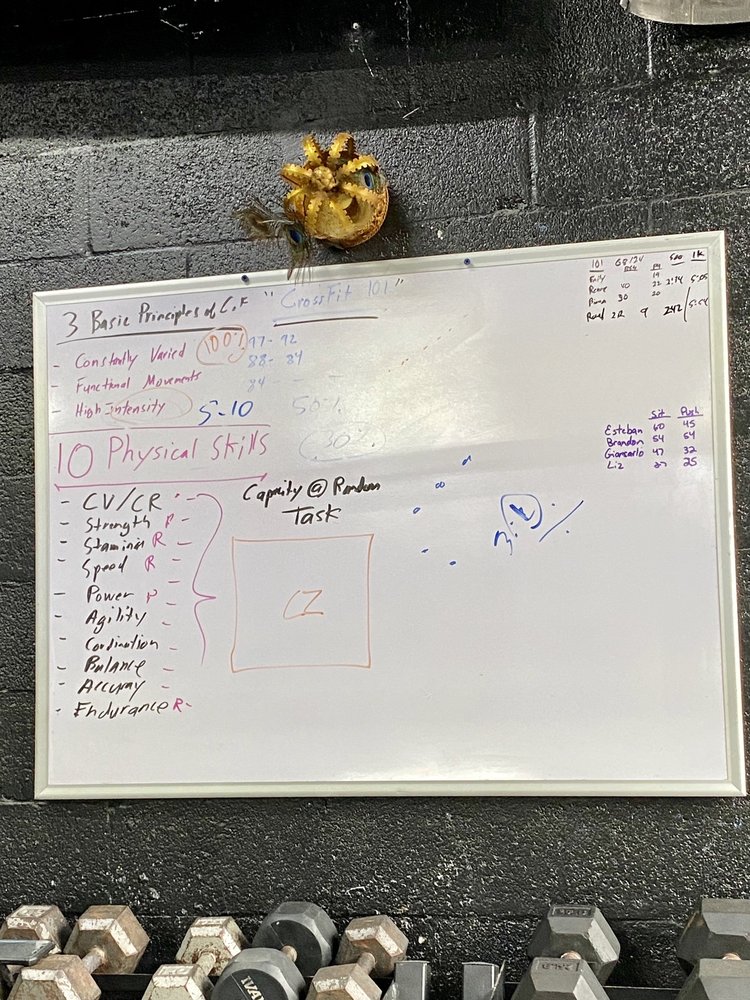 3 Basic Principles of C.F "CrossFit 101"
- Constantly Varied 100% 97-92
- Functional Movements 88-84
- High Intensity 5-10 50%
84
10 Physical Skills (30%)
- CV/CR -
- Strength R -
- Stamina R -
- Speed R -
- Power P -
- Agility -
- Cordination -
- Balance -
- Accuray -
- Endurance R-
Capacity @ Random
Task
CZ
101 500 1K
30 20
22 2:14 5:05
2R 9 242
Sit Push
Esteban 60 45
Brandon 54 54
Giancarlo 47 32
Liz 37 25
IVAN